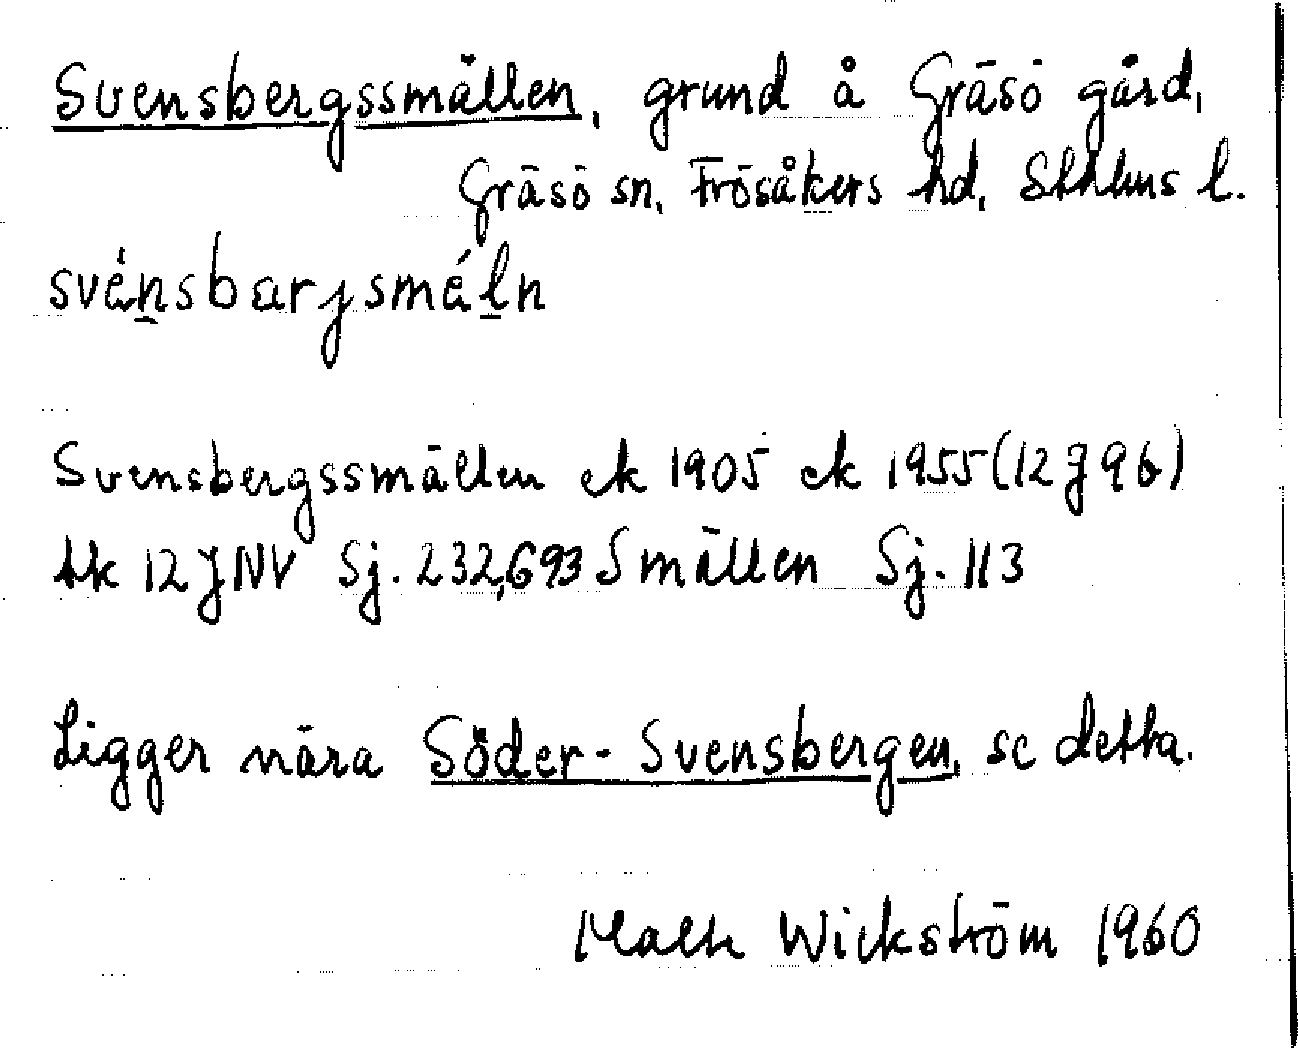 Svensbergssmällen, grund å Gräsö gård,
Gräsö sn, Frösåkers hd, Sthlms l.
svénsbarjsméln
Svensbergssmällen ek 1905 ek 1955 (12J9b)
tk 12JNV Sj. 232,693 Smällen Sj. 113
Ligger nära Söder-Svensbergen, se detta.
Mats Wickström 1960